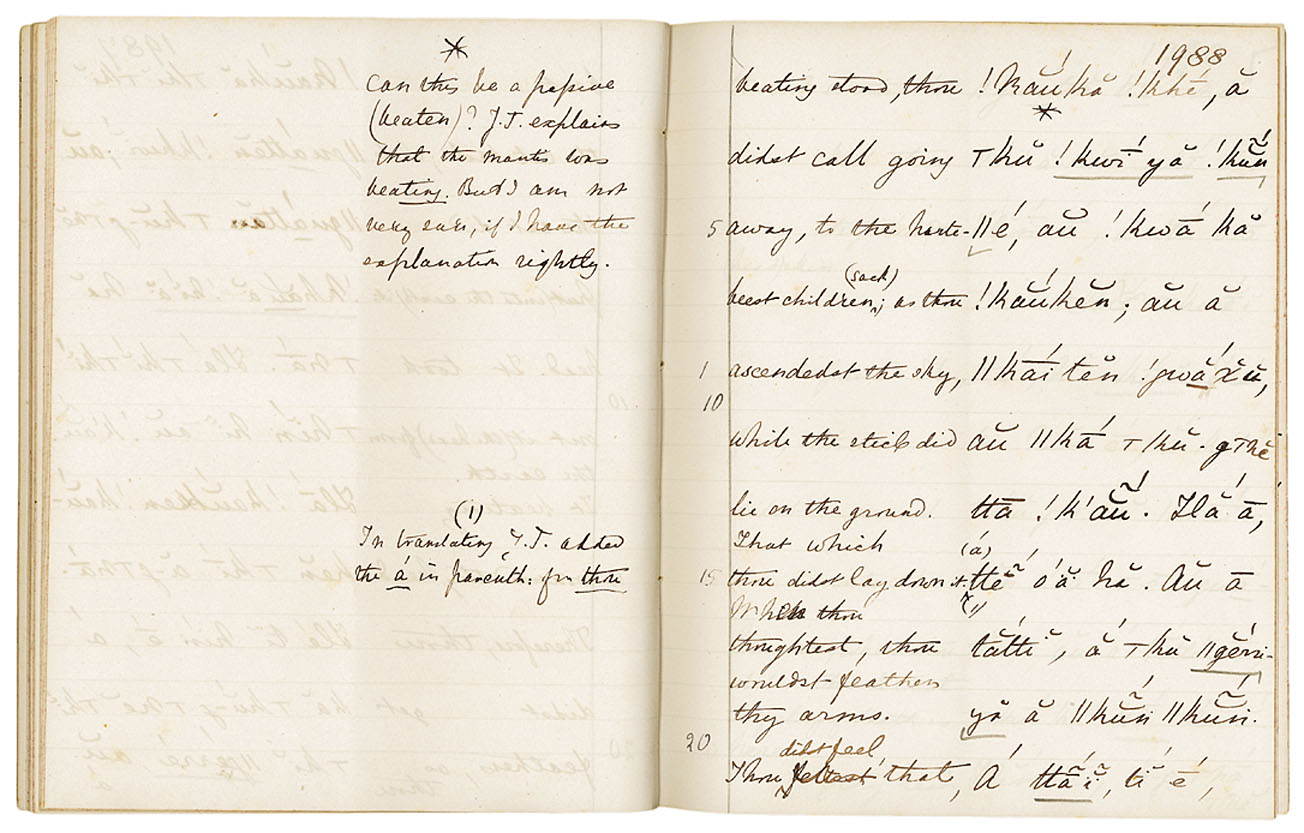 *
Can this be a passive
(beaten)? J.T. explains
that the mantis was
beating. But I am not
very sure, if I have the
explanation rightly.
(1)
In translating, J.T. added
the á in parenth: for thou
1988
beating stood, thou ! káu kă ! khé, ă
*
didst call going ⊤ kŭ ! kwi yă ! kŭn
5 away, to the harte- ǁ é, aŭ ! kwā́ kă
(sack)
beest children; as thou ! káŭkĕn; aŭ ă
1 ascendedst the sky, ǁ kā́i tĕn ! gwắ xŭ,
10
while the stick did aŭ ǁ kā́ ⊤ kŭ - g⊤hĕ
lie on the ground. ttā ! k'aŭ. Ĭlă ā́,
That which (á)
15 thou didst lay down it. ttĕ́ óă hă. Aŭ ā
When thou (1)
thoughtest, thou tắtti, ă ⊤ kŭ ǁgĕrri-
wouldst feather
thy arms. yă ă ǁkŭ́n ǁkŭ́n.
20
didst feel
Thou feltest that, Á ttắĭ, tĭ é,